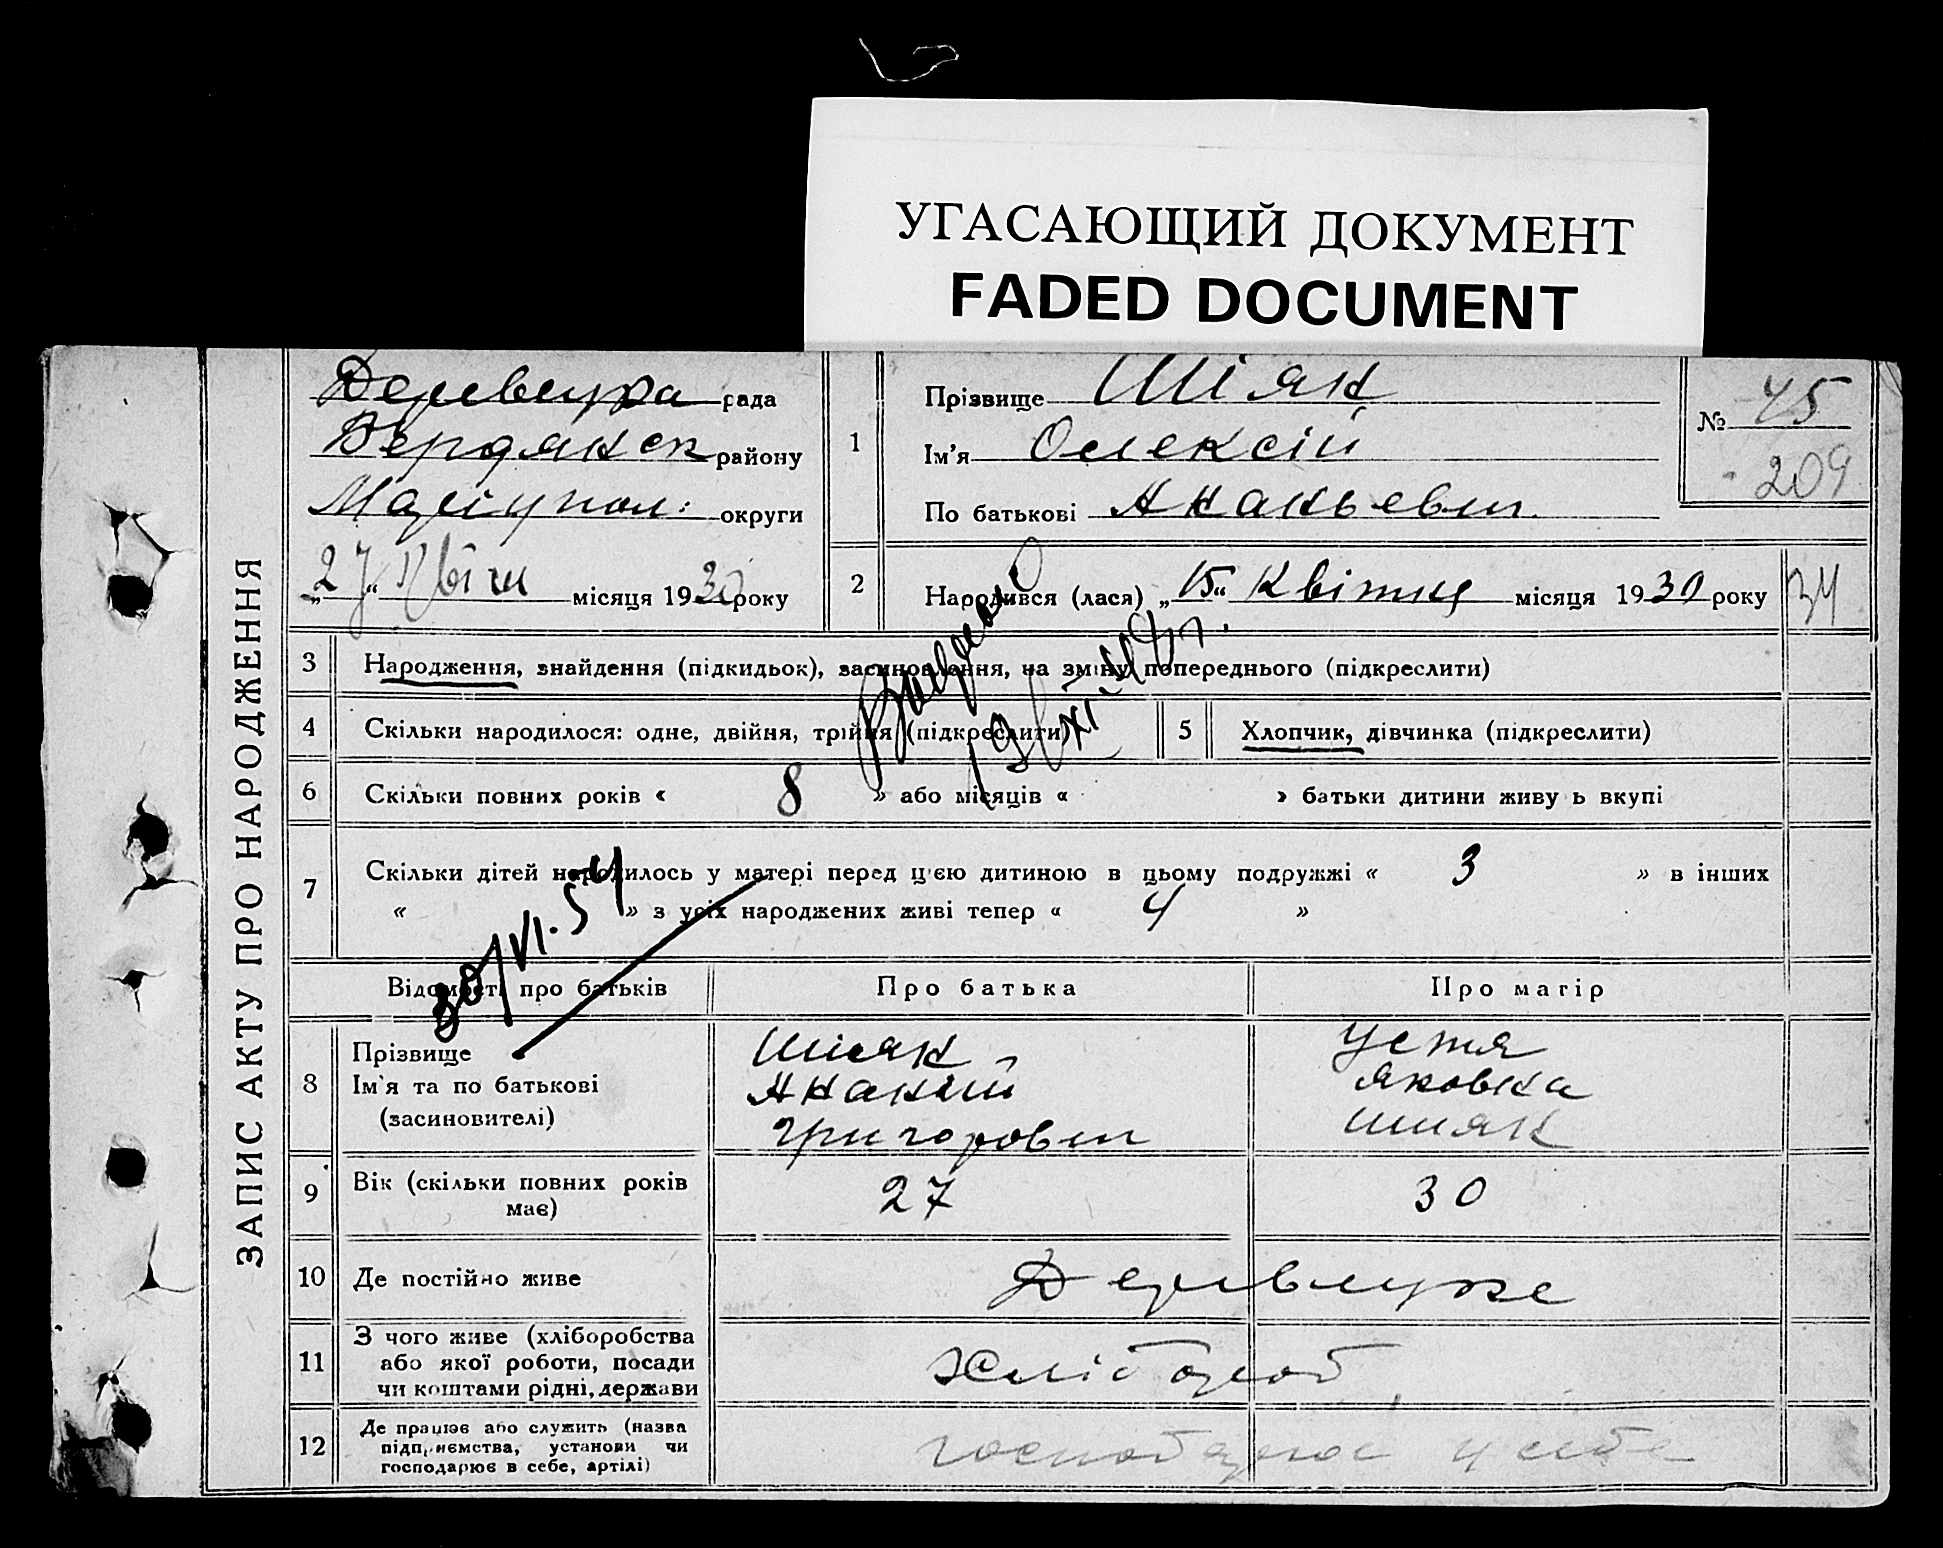 УГАСАЮЩИЙ ДОКУМЕНТ
FADED DOCUMENT
ЗАПИС АКТУ ПРО НАРОДЖЕННЯ
рада
Бердянськ району
Маріупол. округи
„27“ Квітн місяця 1930 року
1
Прізвище Шіяк
Ім'я Олексій
По батькові Акакьевич
№ 45
209
2
Народився (лася) „15“ Квітня місяця 1930 року
34
3 Народження, знайдення (підкидьок), засиновлення, на зміну попереднього (підкреслити)
4 Скільки народилося: одне, двійня, трійня (підкреслити)
5 Хлопчик, дівчинка (підкреслити)
6 Скільки повних років « 8 » або місяців « » батьки дитини живу ь вкупі
7 Скільки дітей народилось у матері перед ц'єю дитиною в цьому подружжі « 3 » в інших
« » з усіх народжених живі тепер « 4 »
30/VI.54
Відомості про батьків Про батька Про матір
8 Прізвище
Ім'я та по батькові
(засиновителі)
Шіяк
Акакій
Григорович
Устя
Яковна
Шияк
9 Вік (скільки повних років
має)
27 30
10 Де постійно живе
11 З чого живе (хліборобства
або якої роботи, посади
чи коштами рідні, держави
Хлібороб
12 Де працює або служить (назва
підприємства, установи чи
господарює в себе, артілі)
господарює у себе